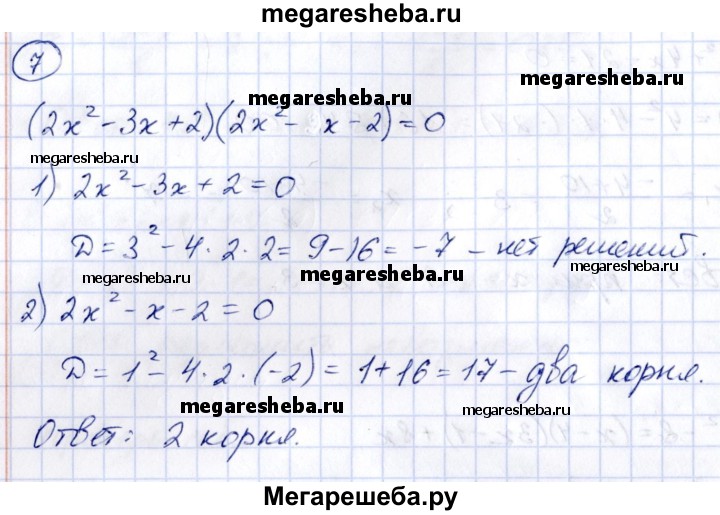 megaresheba.ru
7
megaresheba.ru
megaresheba.ru
(2x² - 3x + 2)(2x² - x - 2) = 0
megaresheba.ru
1) 2x² - 3x + 2 = 0
Д = 3² - 4 · 2 · 2 = 9 - 16 = -7 - нет решений.
megaresheba.ru megaresheba.ru megaresheba.ru
2) 2x² - x - 2 = 0
Д = 1² - 4 · 2 · (-2) = 1 + 16 = 17 - два корня.
megaresheba.ru megaresheba.ru
Ответ: 2 корня.
Мегарешеба.ру